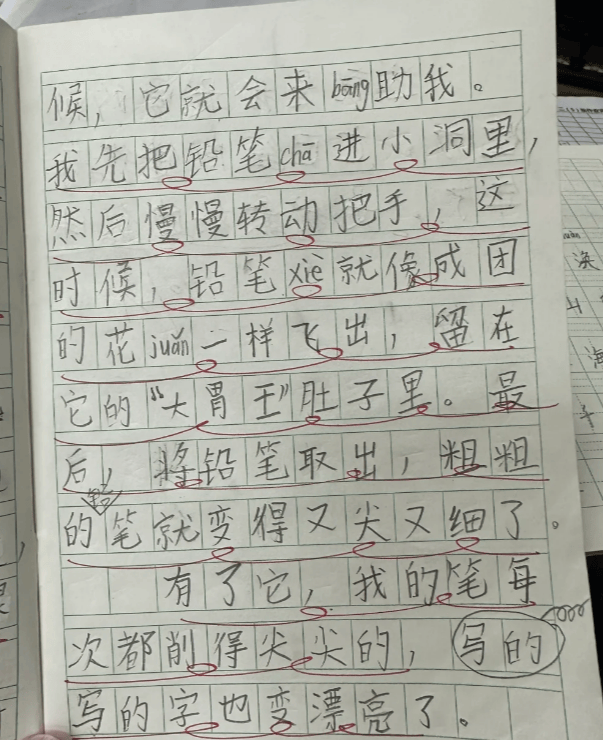 候，它就会来bāng助我。
我先把铅笔chā进小洞里，
然后慢慢转动把手，这
时候，铅笔xiè就像成团
的花juǎn一样飞出，留在
它的“大胃王”肚子里。最
后，将铅笔取出，粗粗
的笔就变得又尖又细了。
有了它，我的笔每
次都削得尖尖的，写的
写的字也变漂亮了。